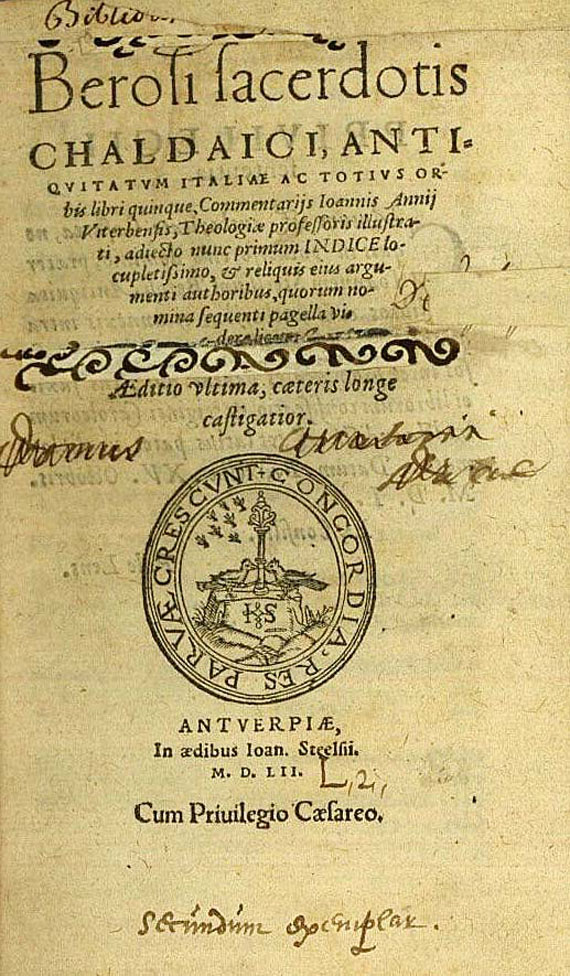 Beroſi ſacerdotis
CHALDAICI, ANTI-
QVITATVM ITALIAE AC TOTIVS OR-
bis libri quinque, Commentarijs Ioannis Annij
Viterbenſis, Theologiæ profeſſoris illuſtra-
ti, adiecto nunc primum INDICE lo-
cupletiſsimo, & reliquis eius argu-
menti authoribus, quorum no-
mina ſequenti pagella vi-
Æditio vltima, cæteris longe
caſtigatior.
CONCORDIA. RES PARVÆ CRESCVNT
IHS
ANTVERPIÆ,
In ædibus Ioan. Steelſii.
M. D. LII.
L, 2,
Cum Priuilegio Cæſareo.
Secundum exemplar.